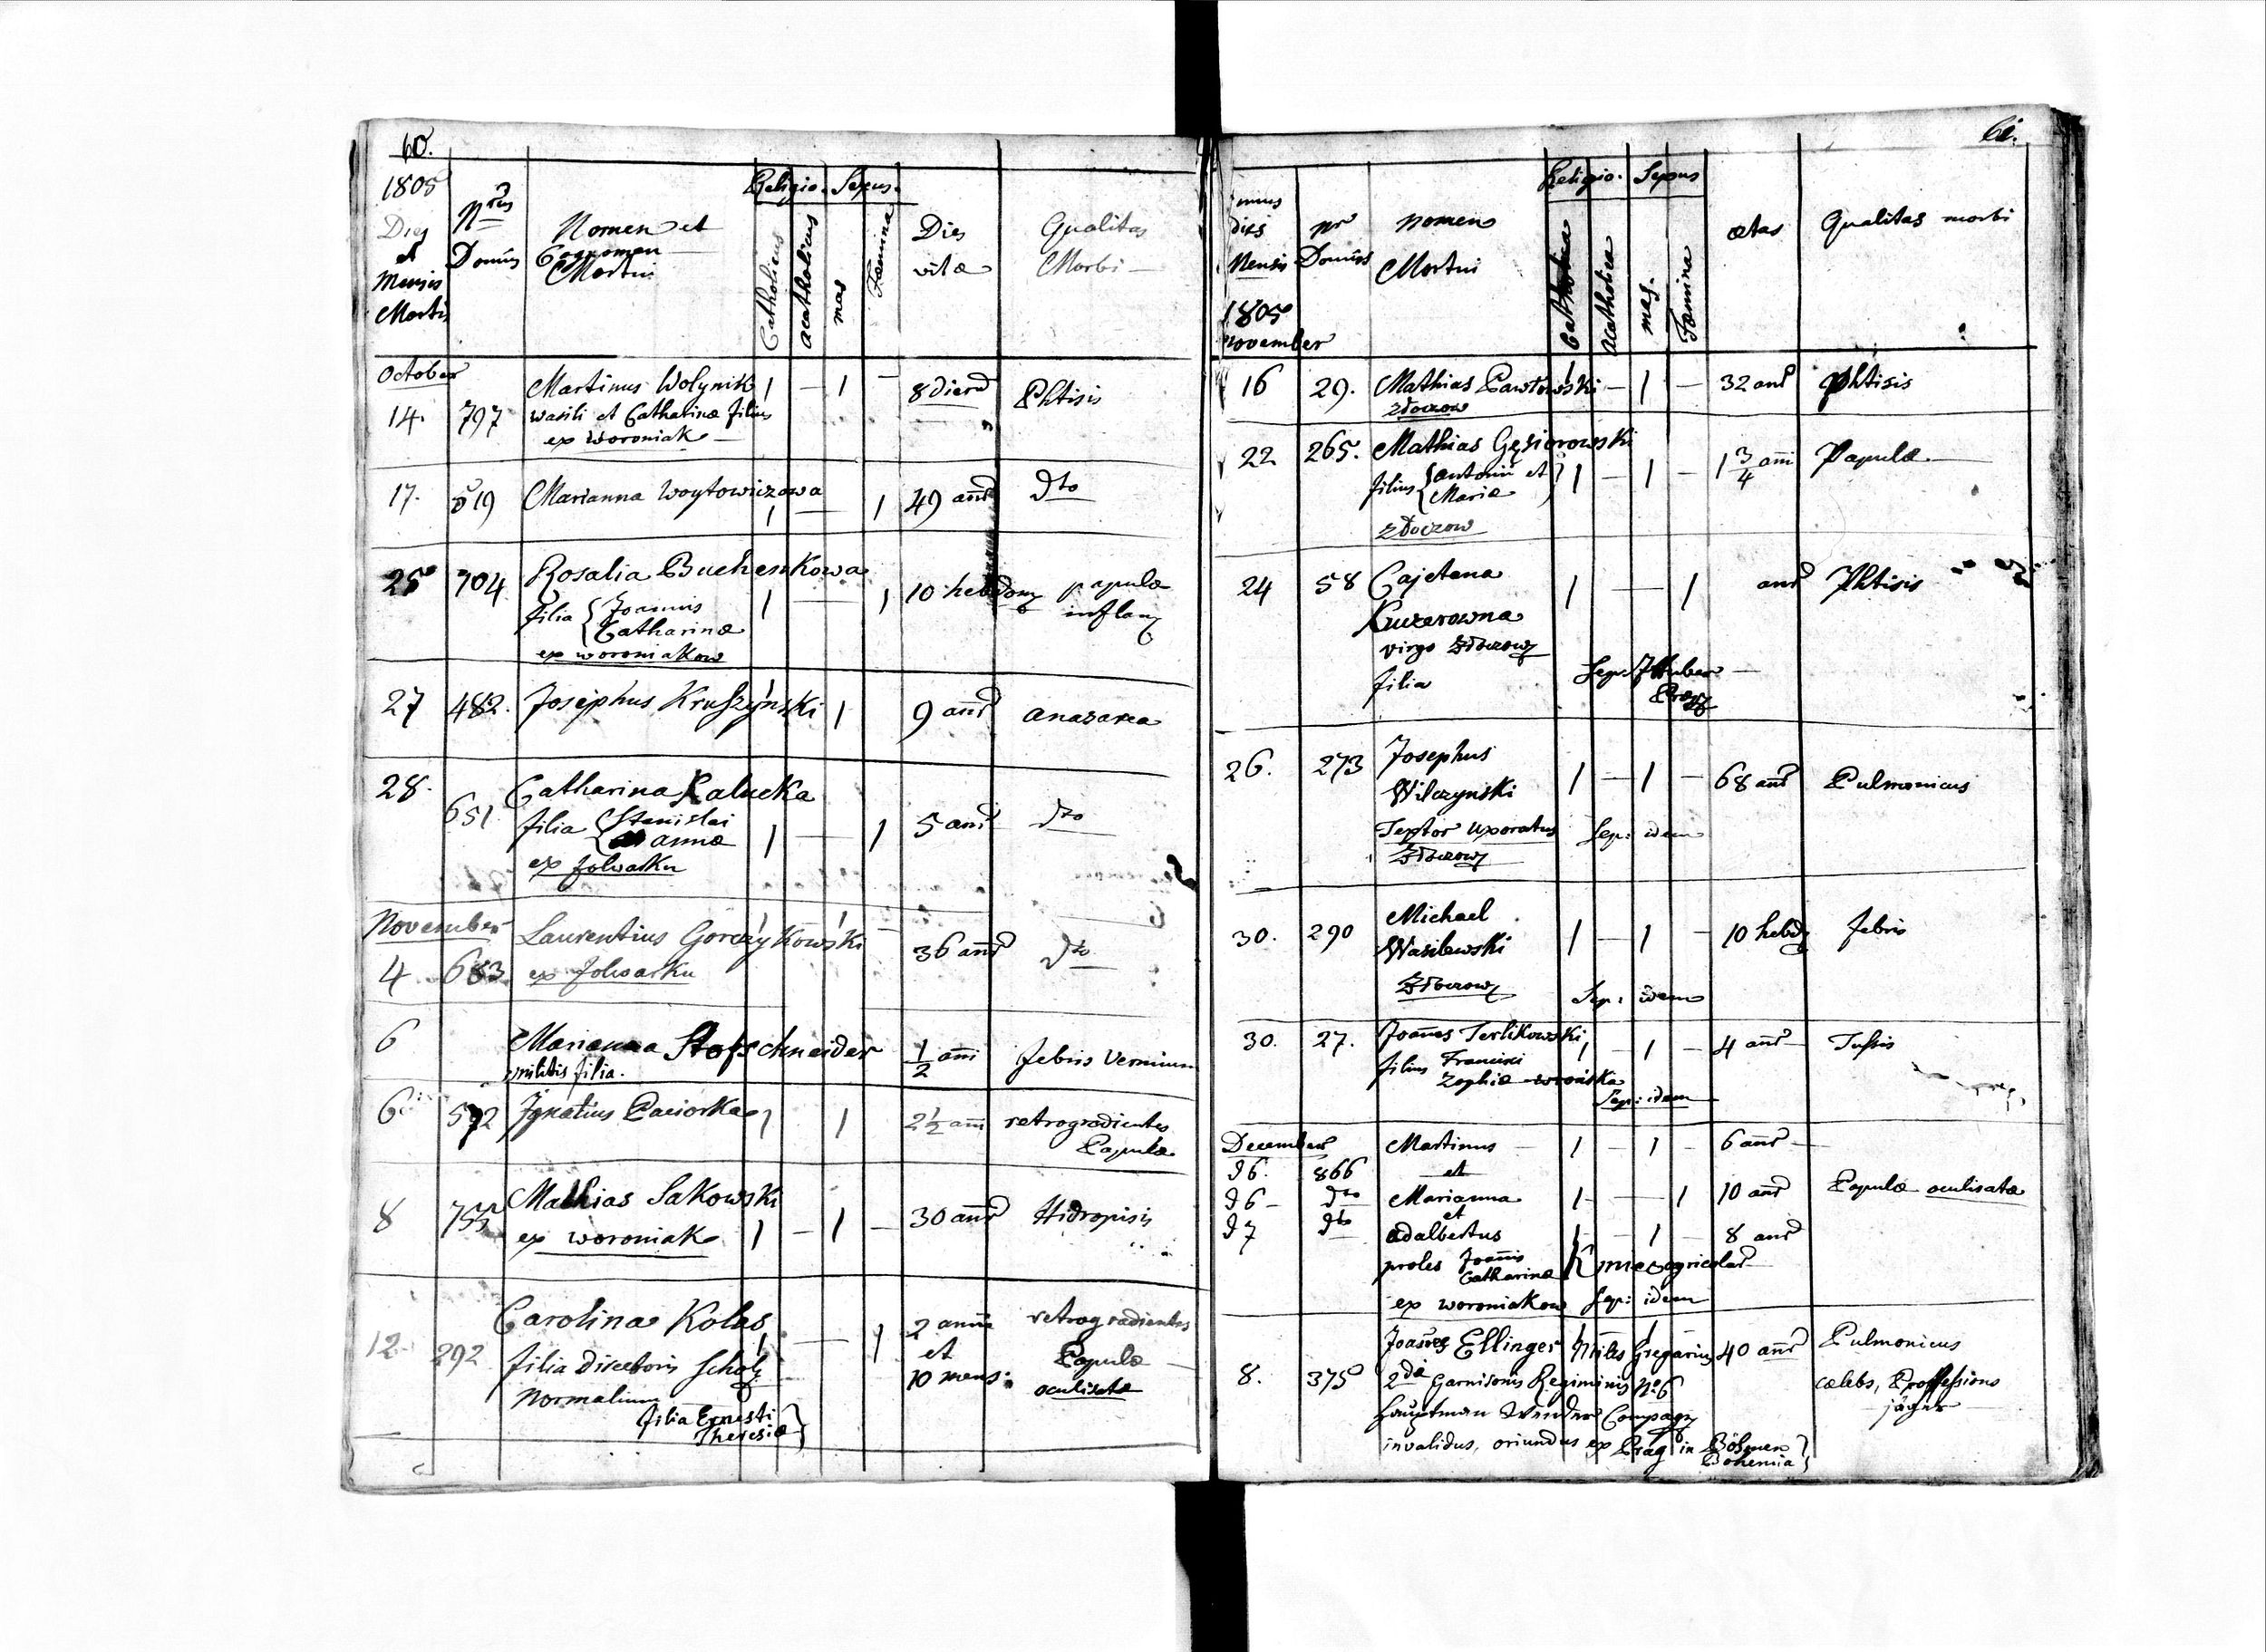 60.
1805
Dies et Mensis Mortis
Nrus Domus
Nomen et Cognomen Mortui
Religio. Sexus.
Catholicus
acatholicus
mas
Fæmina
Dies vitæ
Qualitas Morbi
October
14. 797 Martinus Wolynik 1 – 1 – 8 dier Phtisis
wasili et Catharinæ filius
ex Woroniak
17. 519 Marianna Woytowiczowa 1 — 1 49 anr dto
25 704 Rosalia Buchenkowa 1 — 1 10 hebdom papulæ
filia Joannis inflam
Catharinæ
ex woroniakow
27 482. Josephus Kruszyński 1 9 anr anasarca
28. 651 Catharina Kalucka
filia Stanislai 1 — 1 5 anr dto
annæ
ex folwarku
November
4 683 Laurentius Gorczykowski 36 anr dto
ex folwarku
6 Marianna Stofschneider 1/2 ani febris vermium
militis filia.
6 592 Ignatius Paciorka 1 1 2 1/2 ani retrogradientes
Papulæ
8 Mathias Sakowski
ex woroniak 1 – 1 – 30 anr Hidropisis
12 292 Carolina Kolas 1 — 1 2 anni retrogradientes
filia Directoris Schol et Papulæ
normalium 10 mens. oculisatæ
filia Ernesti
Theresiæ
61.
dies Mensis
nr Domus
nomen Mortui
Religio. Sexus
Catholica
acatholica
mas.
Fæmina
ætas
Qualitas morbi
1805
November
16 29. Mathias Pawłowski – 1 – 32 anr Phtisis
Złoczow
22 265. Mathias Gęsiorowski
filius antonii et 1 – 1 – 1 3/4 ani Papulæ
Mariæ
Złoczow
24 58 Cajetana 1 — 1 anr Phtisis
Kuczerowna
virgo Złoczow
filia
26. 273 Josephus 1 – 1 – 68 anr Pulmonicus
Wilczynski
Textor uxoratus Sep: idem
Złoczow
30. 290 Michael 1 – 1 – 10 hebd febris
Wasilewski
Złoczow Sep: idem
30. 27. Joannes Terlikowski 1 – 1 – 4 anr Tussis
filius Francisci
Zophiæ
Sep: idem
December
26. 866 Martinus 1 – 1 – 6 anr
et
26 – dto Marianna 1 – — 1 10 anr Papulæ oculisatæ
et
27 dto adalbertus 1 – 1 – 8 anr
proles Joannis Kmiec agricolar
Catharinæ
ex woroniakow Sep: idem
8. 375 Joannes Ellinger Miles Gregarius 40 anr Pulmonicus
2da Garnisonis Regiminis No 6 cælebs, Professions
Hauptman Compagn jäger
invalidus, oriundus ex Prag in Böhmen
Bohemia